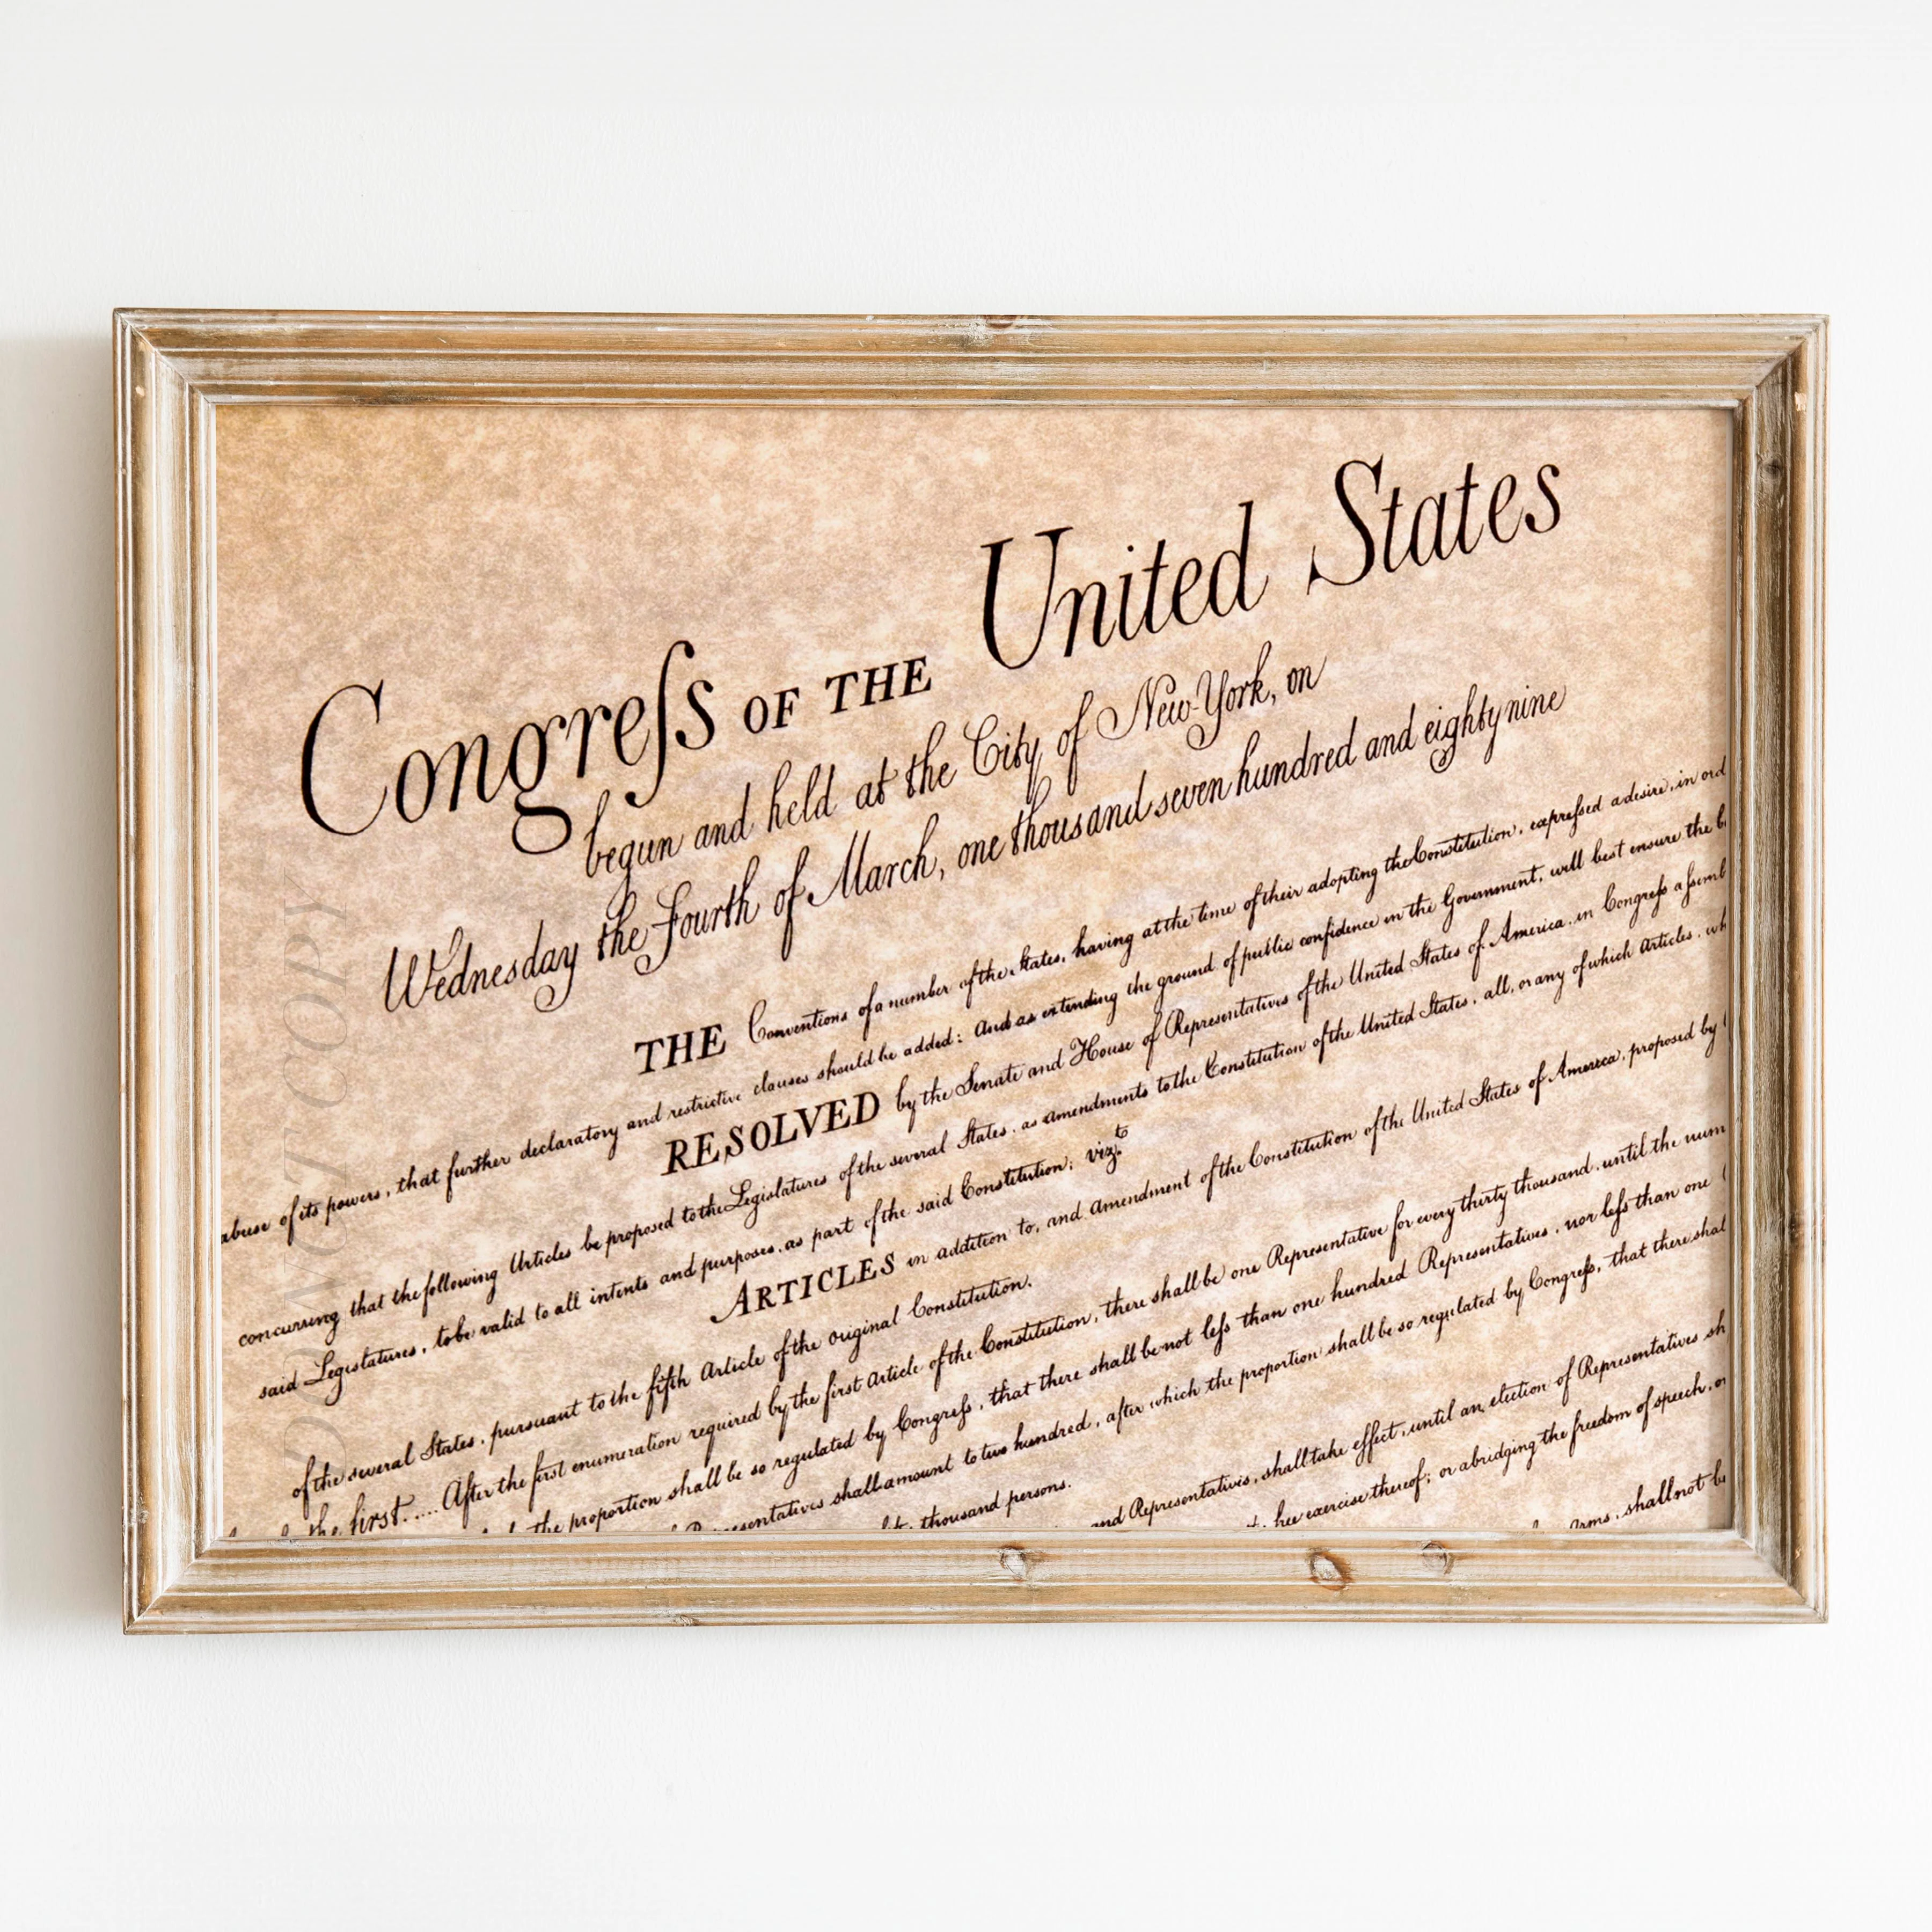 Congreſs OF THE United States
begun and held at the City of New-York, on
Wednesday the Fourth of March, one thousand seven hundred and eighty nine
THE Conventions of a number of the States, having at the time of their adopting the Constitution, expreſsed a desire, in ord
abuse of its powers, that further declaratory and restrictive clauses should be added: And as extending the ground of public confidence in the Government, will best ensure the b
RESOLVED by the Senate and House of Representatives of the United States of America, in Congreſs aſsemb
concurring that the following Articles be proposed to the Legislatures of the several States, as amendments to the Constitution of the United States, all, or any of which Articles, wh
said Legislatures, to be valid to all intents and purposes, as part of the said Constitution; vizt.
ARTICLES in addition to, and Amendment of the Constitution of the United States of America, proposed by
of the several States, pursuant to the fifth Article of the original Constitution.
the first..... After the first enumeration required by the first Article of the Constitution, there shall be one Representative for every thirty thousand, until the num
the proportion shall be so regulated by Congreſs, that there shall be not leſs than one hundred Representatives, nor leſs than one
Representatives shall amount to two hundred, after which the proportion shall be so regulated by Congreſs, that there shal
thousand persons.
and Representatives, shall take effect, until an election of Representatives sh
exercise thereof; or abridging the freedom of speech, o
Arms, shall not b
DO NOT COPY